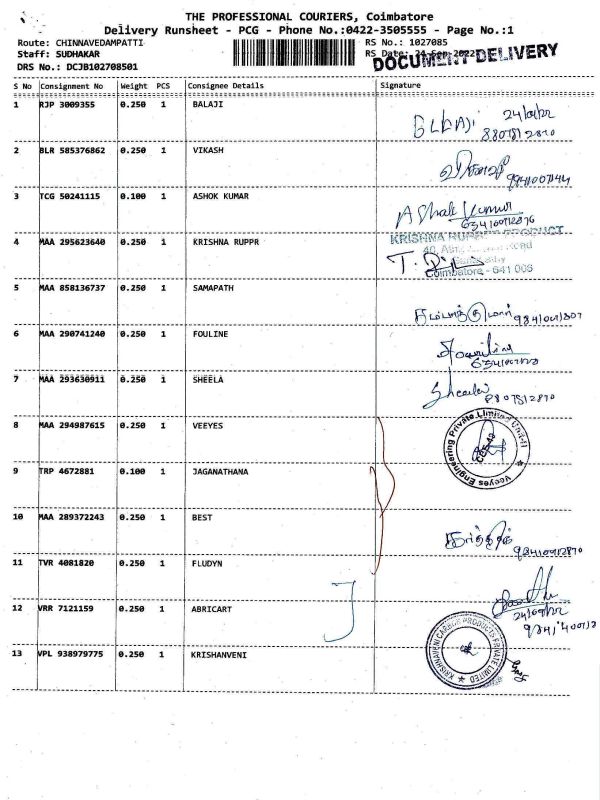 THE PROFESSIONAL COURIERS, Coimbatore
Delivery Runsheet - PCG - Phone No.:0422-3505555 - Page No.:1
Route: CHINNAVEDAMPATTI RS No.: 1027085
Staff: SUDHAKAR RS Date: 24 Sep 2022
DOCUMENT DELIVERY
DRS No.: DCJB102708501
S No Consignment No Weight PCS Consignee Details Signature
1 RJP 3009355 0.250 1 BALAJI
BLBAJI 24/09/22
8807812870
2 BLR 585376862 0.250 1 VIKASH
3 TCG 50241115 0.100 1 ASHOK KUMAR
Ashok Kumar
4 MAA 295623640 0.250 1 KRISHNA RUPPR
KRISHNA RUPPR PRODUCT
Coimbatore - 641 006
5 MAA 858136737 0.250 1 SAMAPATH
6 MAA 290741240 0.250 1 FOULINE
7 MAA 293630911 0.250 1 SHEELA
Sheela
8807812870
8 MAA 294987615 0.250 1 VEEYES
Veeyes Engineering Private Limited Unit-II
9 TRP 4672881 0.100 1 JAGANATHANA
10 MAA 289372243 0.250 1 BEST
11 TVR 4081820 0.250 1 FLUDYN
12 VRR 7121159 0.250 1 ABRICART
24/09/22
13 VPL 938979775 0.250 1 KRISHANVENI
KRISHNAVENI CARBON PRODUCTS PRIVATE LIMITED